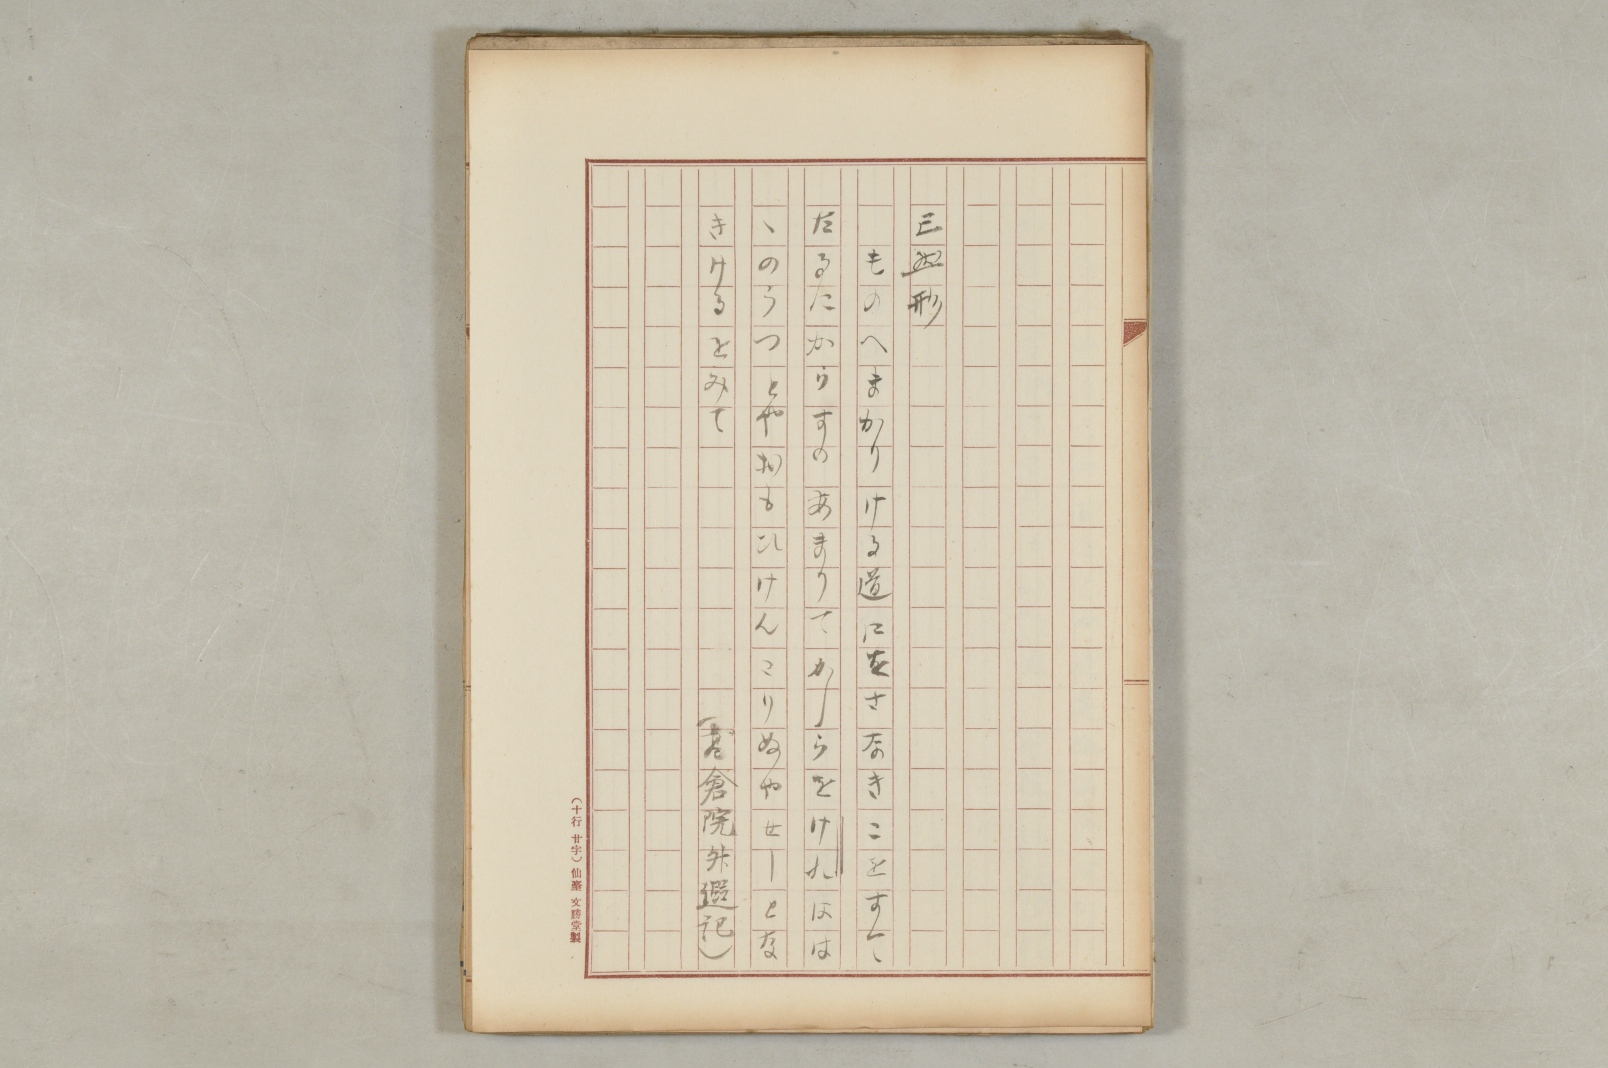 三 形
ものへまかりける道にをさなきこをすてヽ
たるにからすのあまりてかしらをけれはは
ヽのうつとやおもひけんこりぬやせしとな
きけるとみて
倉院外 記)
(十行 廿字)仙臺 文勝堂製